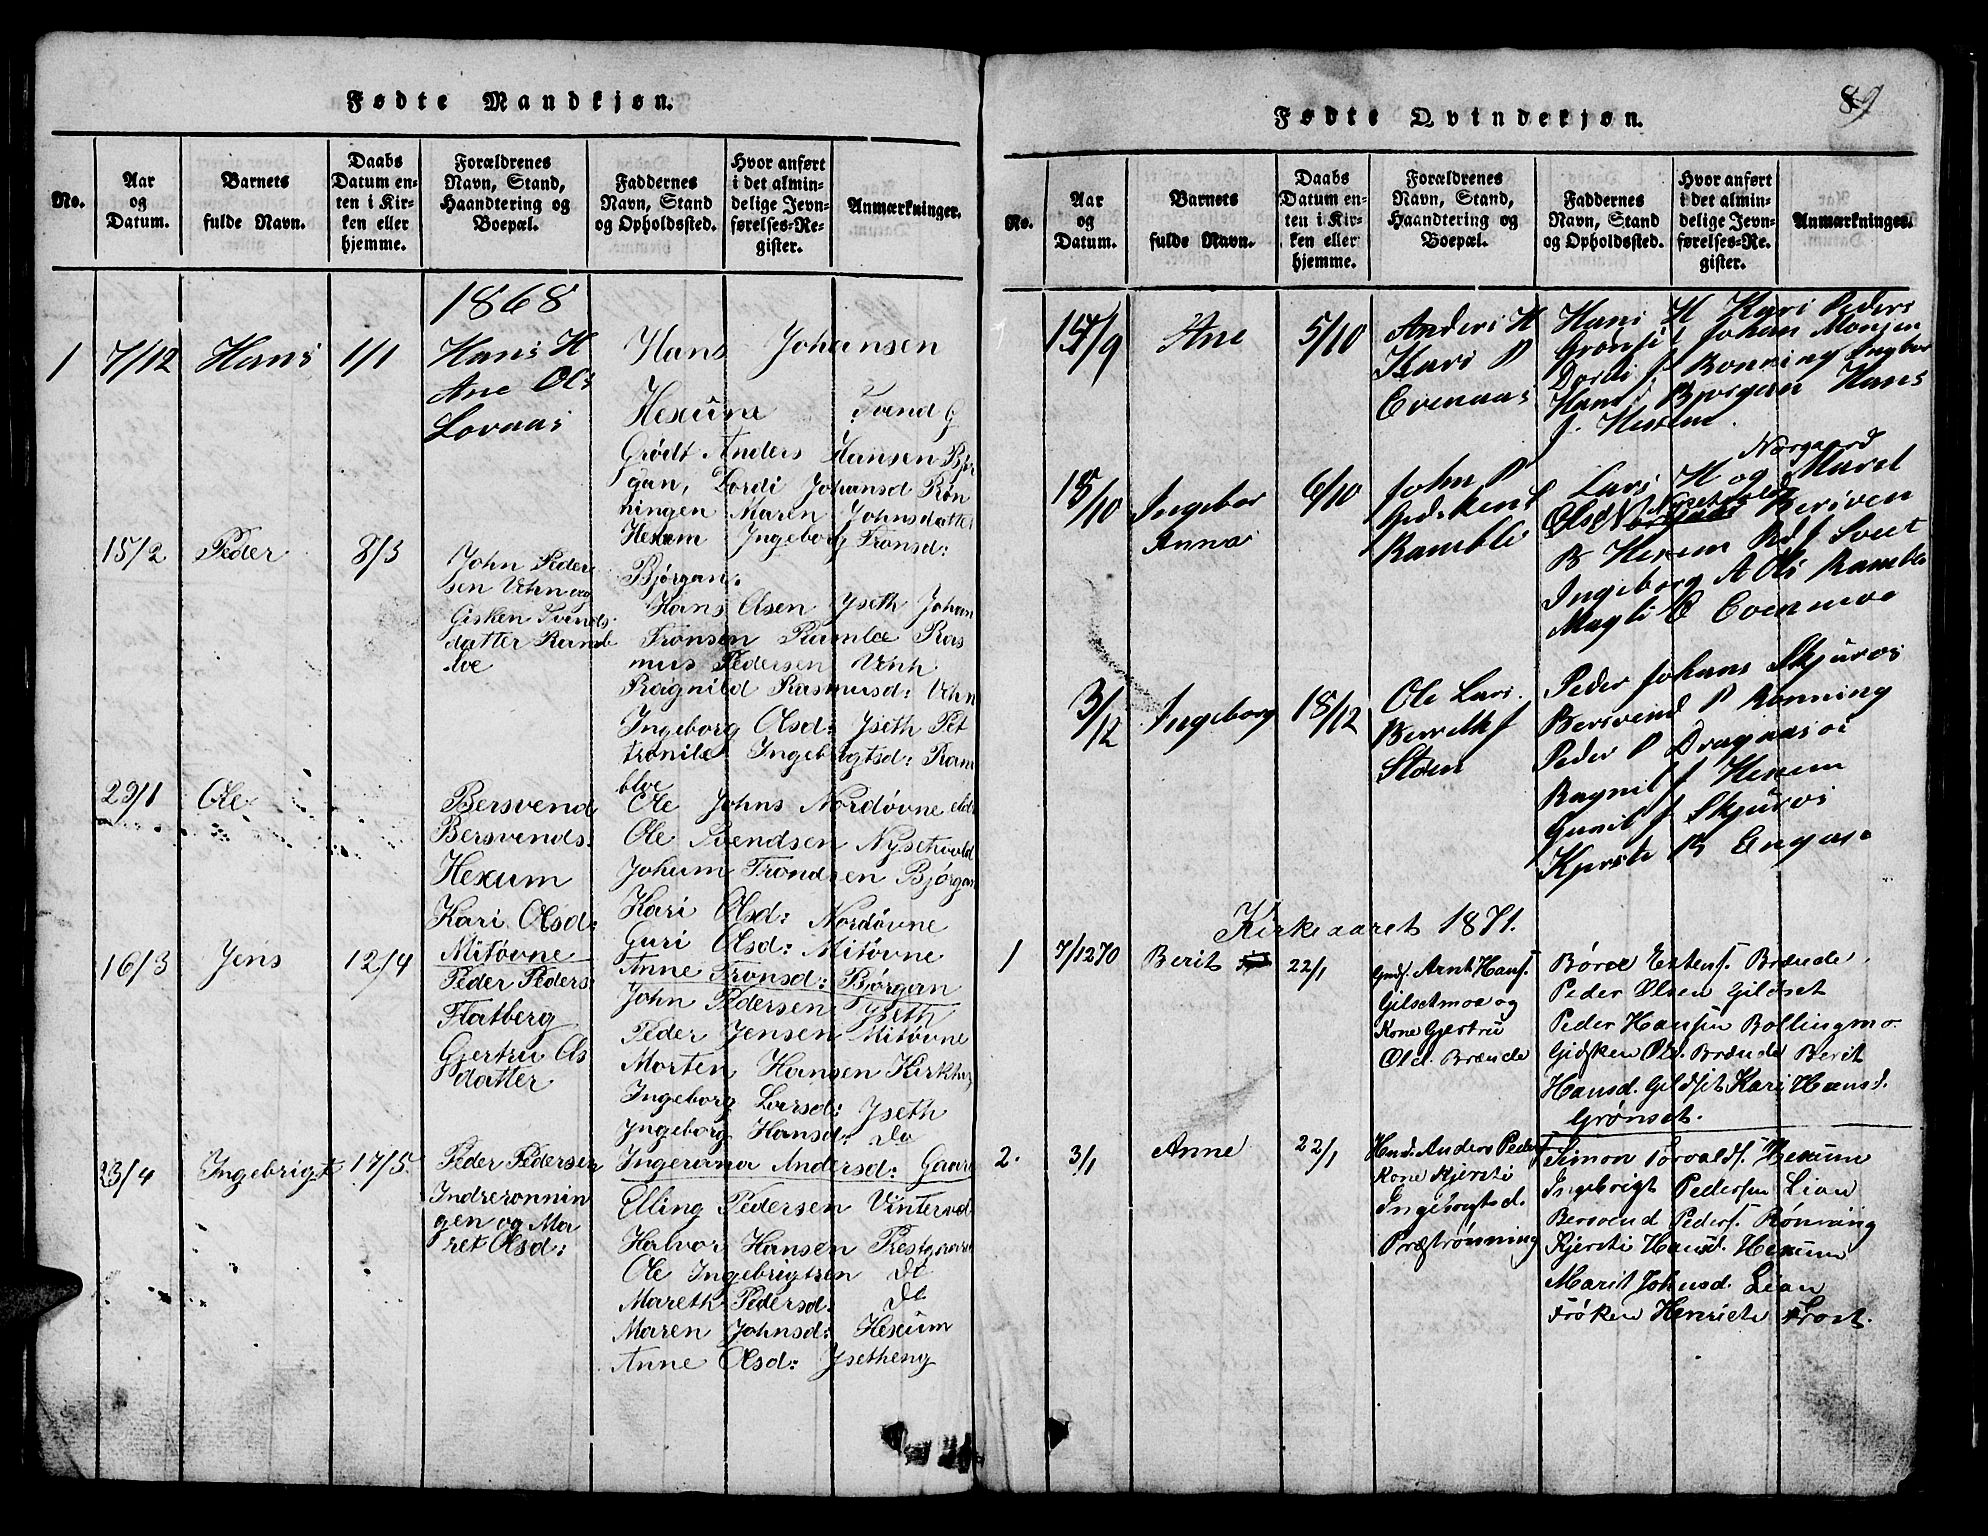 Fødte Mandkjøn.
No.
Aar og Datum.
Barnets fulde Navn.
Daabs Datum enten i Kirken eller hjemme.
Forældrenes Navn, Stand, Haandtering og Boepæl.
Faddernes Navn, Stand og Opholdssted.
Hvor anført i det almindelige Jevnførelses-Register.
Anmærkninger.
1868
1 7/12 Hans 1/1
Hans H
Ane Ols
Lovaas
Hans Johansen
Hexum Svend G
Grødt Anders Hansen Bjør
gan, Dordi Johansd Røn
ningen Maren Johnsdatter
Hexem Ingeborg Tronsd:
Bjørgan:
15/2 Peder 8/3
John Peder
sen Vehn og
Gisken Svends
datter Ramb
loe
Hans Olsen Yseth Johan
Tronsen Ramloe Ras
mus Pedersen Vehn
Ragnild Rasmusd: Vehn
Ingeborg Olsd: Yseth Pet
tronile Ingebrigtsd: Ram
bloe
29/1 Ole
Bersvend
Bersvends:
Hexum
Kari Olsd:
Mitøvne
Ole Johns Nordøvne eldr
Ole Svendsen Nysetvold
Johum Trondsen Bjørgan
Kari Olsd: Nordøvne
Guri Olsd: Mitøvne
Anne Tronsd: Bjørgan
16/3 Jens 12/4
Peder Peders
Flatberg
Gjertru Ols
datter
John Pedersen Yseth
Peder Jensen Mitøvne
Morten Hansen Kirkhug
Ingeborg Larsd: Yseth
Ingeborg Hansd: do
23/4 Ingebrigt 17/5.
Peder Pedersen
Indrerønnin
gen og Ma
ret Olsd:
Ingerana Andersd: Gaare
Elling Pedersen Vintervold
Halvor Hansen Prestgaard
Ole Ingebrigtsen do
Mareth Pedersd: do
Maren Johnsd: Hexum
Anne Olsd: Ysetheng
89
Fødte Qvindekjøn.
No.
Aar og Datum.
Barnets fulde Navn.
Daabs Datum enten i Kirken eller hjemme.
Forældrenes Navn, Stand, Haandtering og Boepæl.
Faddernes Navn, Stand og Opholdssted.
Hvor anført i det almindelige Jevnførelses-Register.
Anmærkninger.
Ane 5/10
Anders H
Kari P
Evenaas
Hans H Kari Peders
Grønset Johan Monsen
Dordi J Rønning Ingbor
Hans Bjørgan Hans
J. Hexem
Ingebor
Anna
6/10
John P
Gidsken
Ramblo
Norgaard
Lars H og Maret
B Hexem
Ingeborg A Ols Ramblo
Magli E Evenmoe
3/12 Ingeborg 18/12
Ole Lars.
Berreth J
Støen
Peder Johans Skjurvs
Bersvend P Rønning
Peder P Dragaasoe
Ragnil J Hexem
Gunil J Skjurvs
Kjersti B Engan
Kirkeaaret 1871.
1 7/12 70 Berit 22/1
Gmd. Arnt Hans.
Gilsetmoe og
Kone Gjertru
Olsd. Brænde
Børre Estens. Brænde
Peder Olsen Gildset
Peder Hansen Bollingmo
Gidsken Olsd. Brænde Berit
Hansd. Gildset Kari Hansd.
Grønset.
2. 3/1 Anne 22/1
Hmd. Anders Peders
Kone Kjersti
Ingebrigtsd.
Præstrønning
Simon Torvalds. Hexum
Ingebrigt Pedersen Lian
Bersvend Peders. Rønning
Kjersti Hansd. Hexum
Marit Johnsd. Lian
Frøken Henriete Frost.